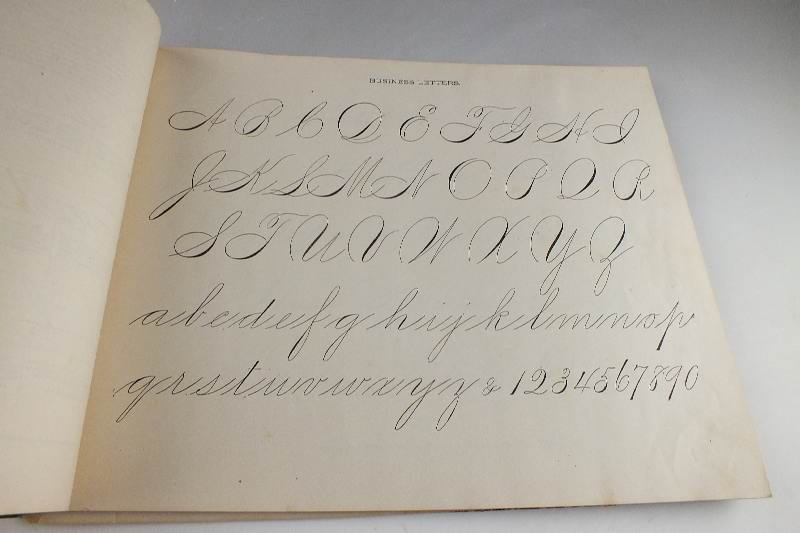 BUSINESS LETTERS.
A B C D E F G H I
J K L M N O P Q R
S T U V W X Y Z
a b c d e f g h i j k l m n o p
q r s t u v w x y z & 1 2 3 4 5 6 7 8 9 0